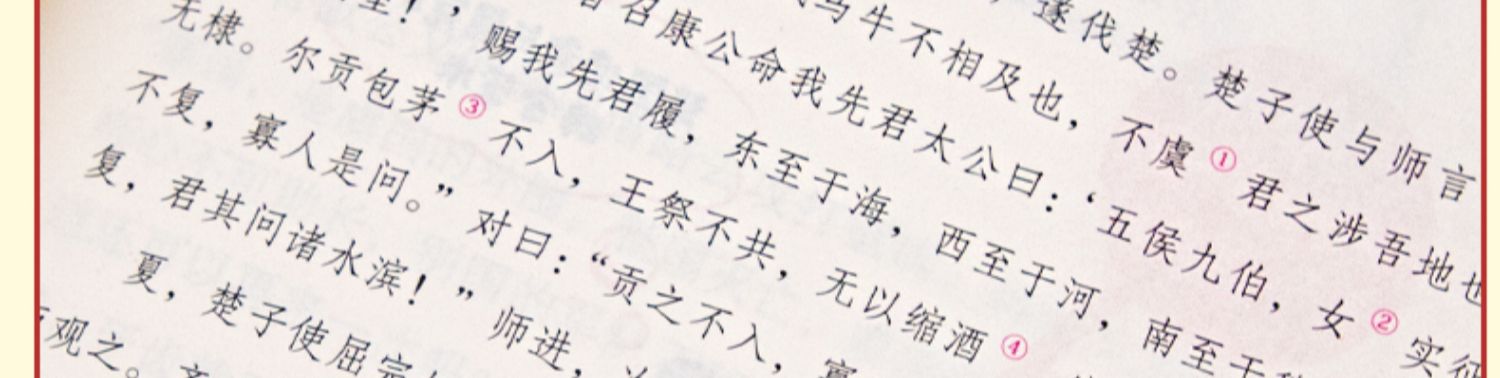 ，遂伐楚。楚子使与师言
马牛不相及也，不虞①君之涉吾地也
召康公命我先君太公曰：‘五侯九伯，女②实征
！’，赐我先君履，东至于海，西至于河，南至于
无棣。尔贡包茅③不入，王祭不共，无以缩酒④
不复，寡人是问。”对曰：“贡之不入，寡
复，君其问诸水滨！”师进，
夏，楚子使屈完
观之。